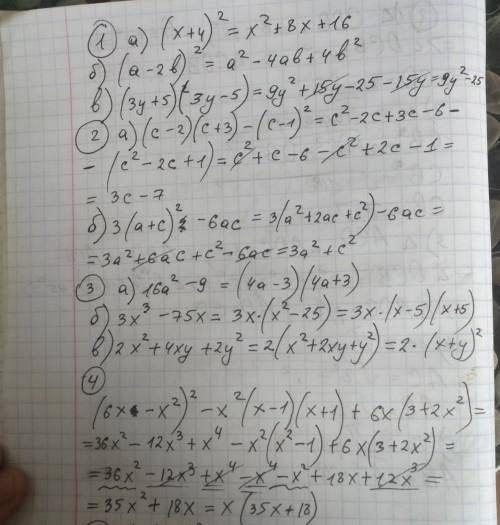 ① а) (x+4)² = x²+8x+16
б) (a-2b)² = a²-4ab+4b²
в) (3y+5)(3y-5) = 9y²+15y-25-15y = 9y²-25
② а) (c-2)(c+3)-(c-1)² = c²-2c+3c-6-
-(c²-2c+1) = c²+c-6-c²+2c-1 =
= 3c-7
б) 3(a+c)² -6ac = 3(a²+2ac+c²)-6ac =
= 3a²+6ac+c²-6ac = 3a²+c²
③ а) 16a²-9 = (4a-3)(4a+3)
б) 3x³-75x = 3x·(x²-25) = 3x·(x-5)(x+5)
в) 2x²+4xy+2y² = 2(x²+2xy+y²) = 2·(x+y)²
④
(6x-x²)²-x²(x-1)(x+1)+6x(3+2x²) =
= 36x²-12x³+x⁴-x²(x²-1)+6x(3+2x²) =
= 36x²-12x³+x⁴-x⁴-x²+18x+12x³ =
= 35x²+18x = x(35x+18)